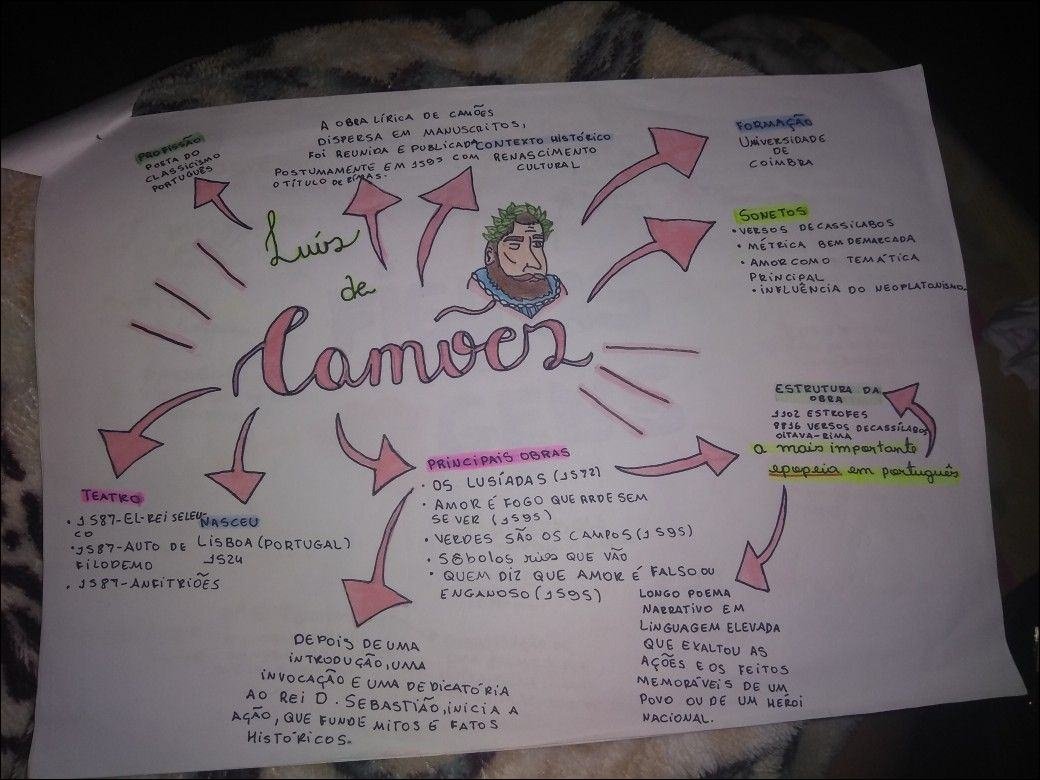 PROFISSÃO
POETA DO
CLASSICISMO
PORTUGUÊS
A OBRA LÍRICA DE CAMÕES
DISPERSA EM MANUSCRITOS,
FOI REUNIDA E PUBLICADA
POSTUMAMENTE EM 1595 COM
O TÍTULO DE RIMAS.
CONTEXTO HISTÓRICO
RENASCIMENTO
CULTURAL
FORMAÇÃO
UNIVERSIDADE
DE
COIMBRA
SONETOS
• VERSOS DECASSÍLABOS
• MÉTRICA BEM DEMARCADA
• AMOR COMO TEMÁTICA
PRINCIPAL
• INFLUÊNCIA DO NEOPLATONISMO.
Luís
de
Camões
ESTRUTURA DA
OBRA
1102 ESTROFES
8816 VERSOS DECASSÍLABOS
OITAVA-RIMA
a mais importante
epopeia em português
TEATRO
• 1587-EL-REI SELEU-
CO
• 1587-AUTO DE
FILODEMO
• 1587-ANFITRIÕES
NASCEU
LISBOA (PORTUGAL)
1524
PRINCIPAIS OBRAS
• OS LUSÍADAS (1572)
• AMOR É FOGO QUE ARDE SEM
SE VER (1595)
• VERDES SÃO OS CAMPOS (1595)
• SÔBOLOS rios QUE VÃO
• QUEM DIZ QUE AMOR É FALSO OU
ENGANOSO (1595)
DEPOIS DE UMA
INTRODUÇÃO, UMA
INVOCAÇÃO E UMA DEDICATÓRIA
AO REI D. SEBASTIÃO, INICIA A
AÇÃO, QUE FUNDE MITOS E FATOS
HISTÓRICOS.
LONGO POEMA
NARRATIVO EM
LINGUAGEM ELEVADA
QUE EXALTOU AS
AÇÕES E OS FEITOS
MEMORÁVEIS DE UM
POVO OU DE UM HERÓI
NACIONAL.